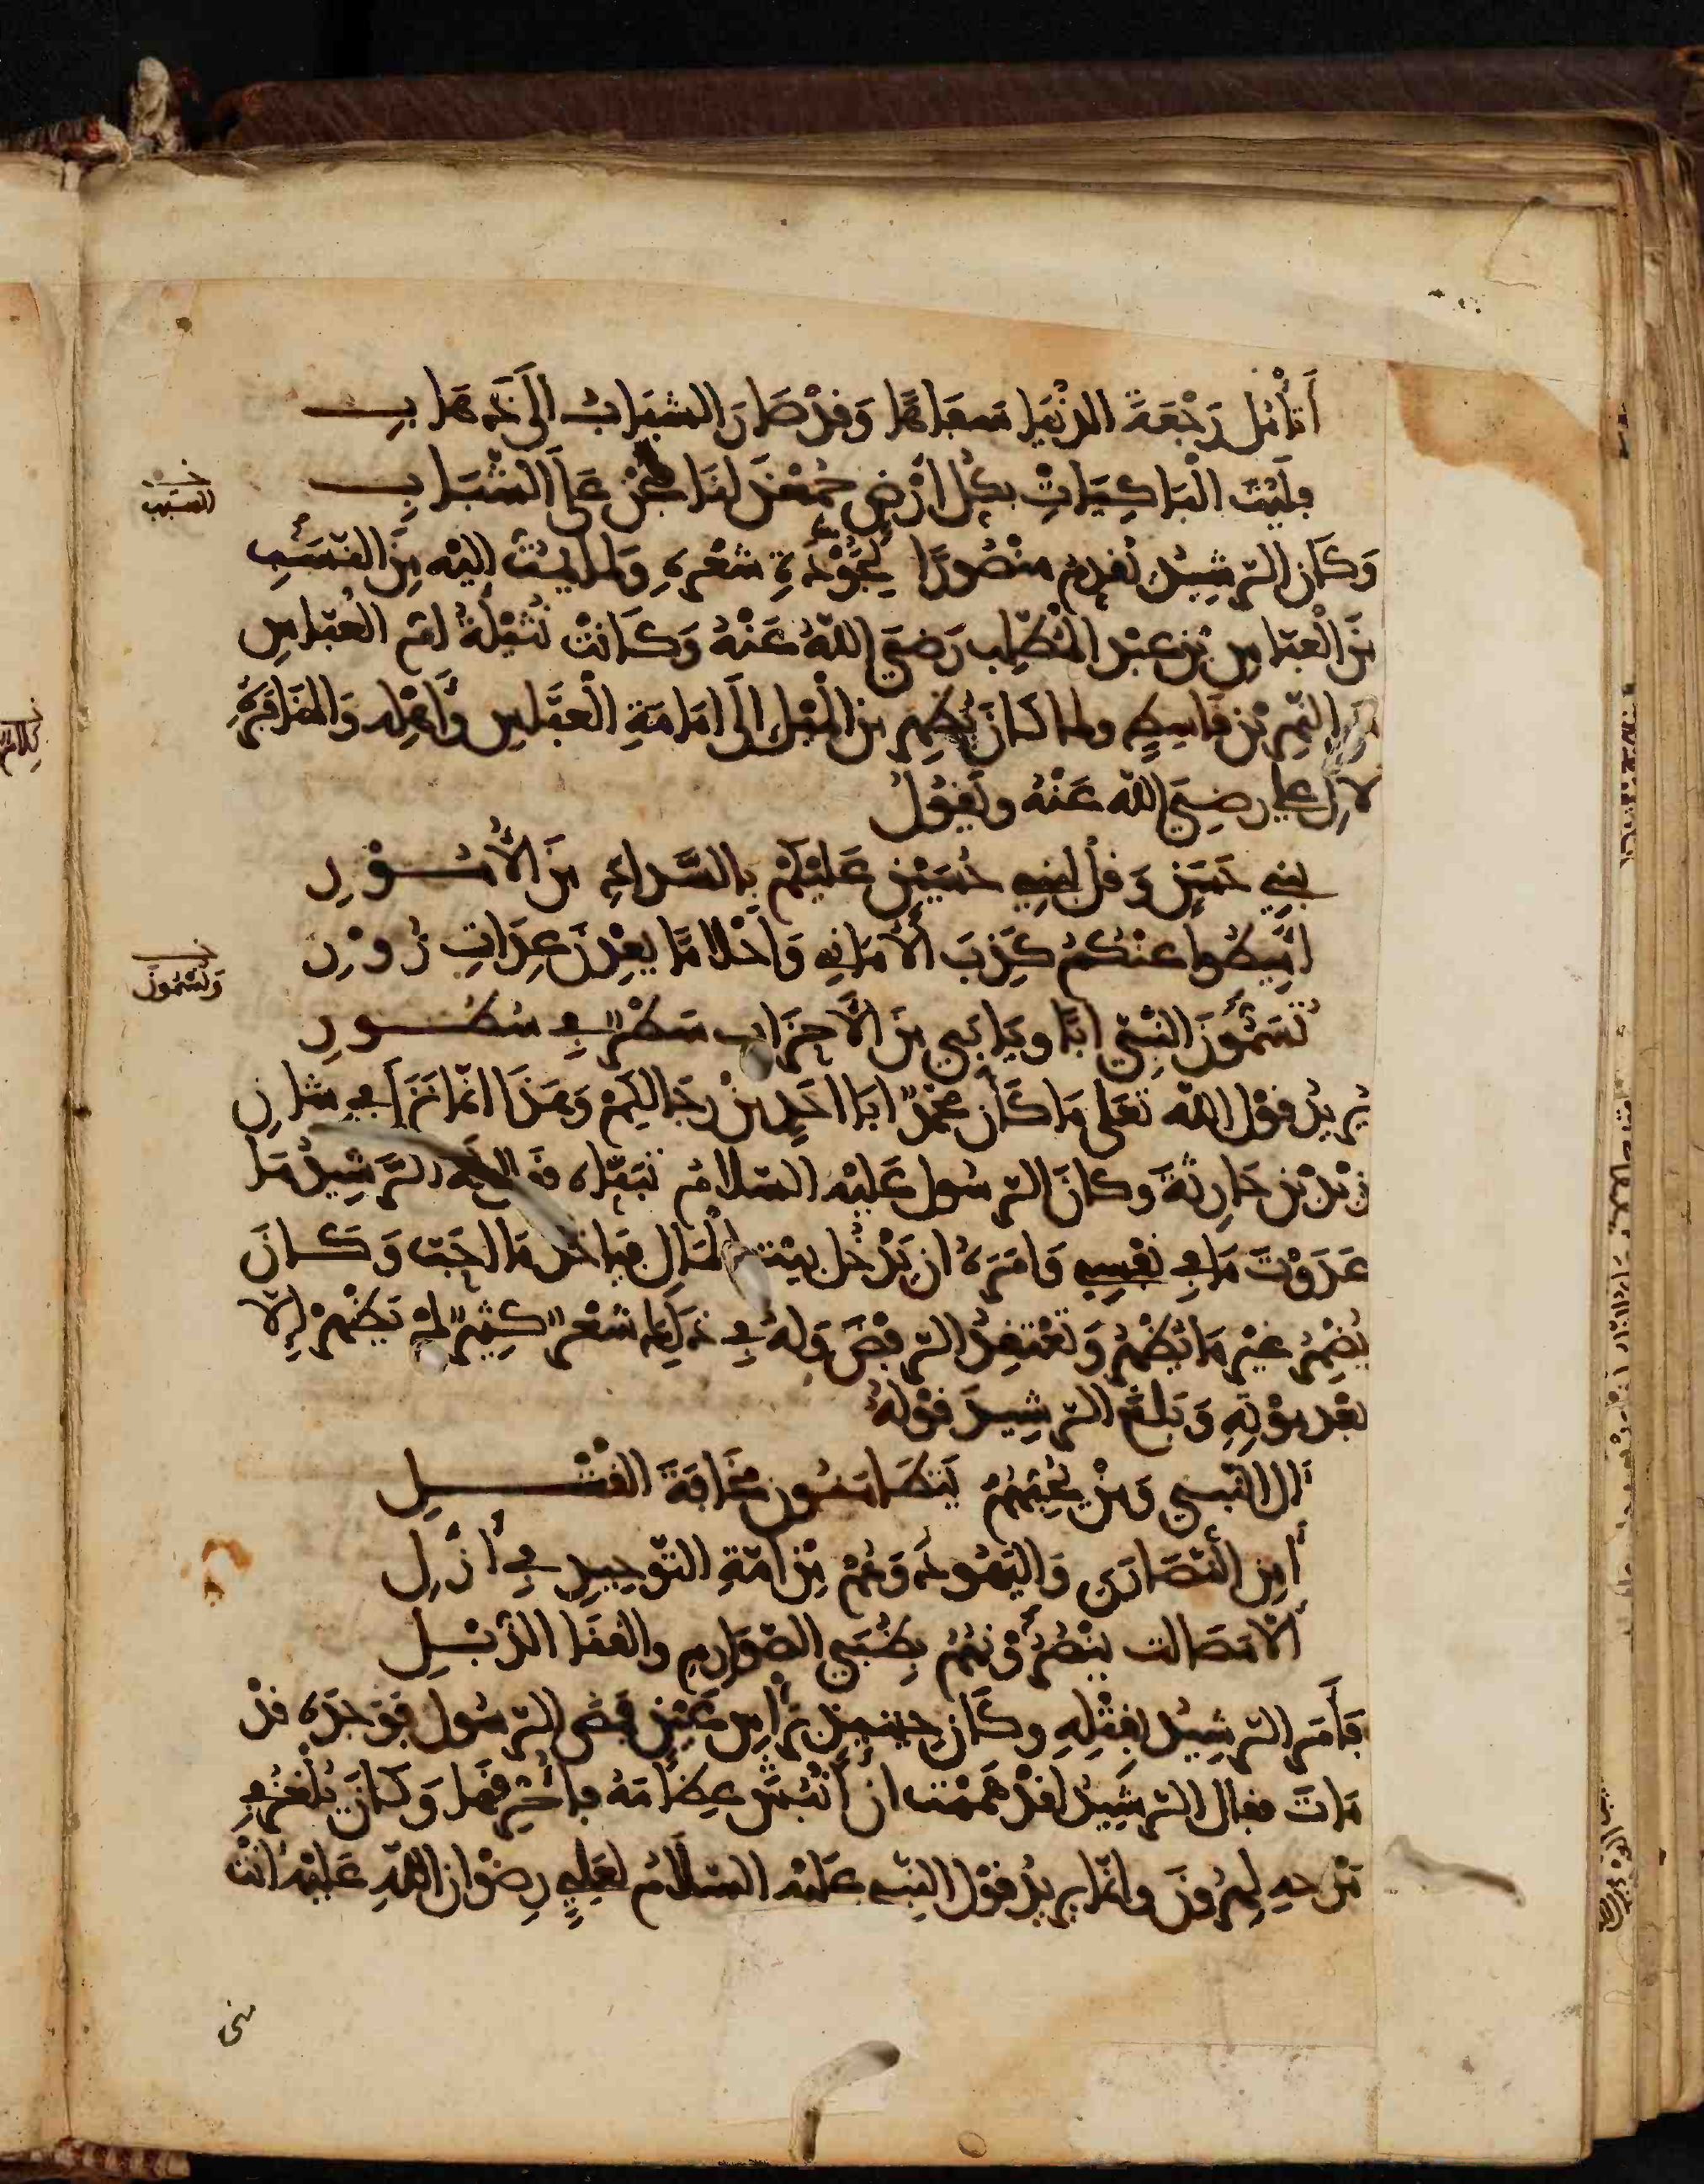 أَتَأْمُلُ رَجْعَةَ الدُّنْيَا سَفَاهًا وَقَدْ صَارَ الشَّبَابُ إِلَى ذَهَابِ
فَلَيْتَ الْبَاكِيَاتِ بِكُلِّ أَرْضٍ جُمِعْنَ لَنَا فَنُحْنَ عَلَى الشَّبَابِ
النسب
وَكَانَ الرَّشِيدُ يُقَدِّمُ مَنْصُورًا لِجَوْدَةِ شِعْرِهِ وَلِمَا يَمُتُّ إِلَيْهِ مِنَ النَّسَبِ
مِنَ الْعَبَّاسِ بْنِ عَبْدِ الْمُطَّلِبِ رَضِيَ اللّٰهُ عَنْهُ وَكَانَتْ نُتَيْلَةُ أُمُّ الْعَبَّاسِ
مِنَ النَّمِرِ بْنِ قَاسِطٍ وَلِمَا كَانَ يُظْهِرُ مِنَ الْمَيْلِ إِلَى إِمَامَةِ الْعَبَّاسِ وَأَهْلِهِ وَالْمُنَافَرَةِ
لِآلِ عَلِيٍّ رَضِيَ اللّٰهُ عَنْهُ وَيَقُولُ
بَنِي حَسَنٍ وَقُلْ لِبَنِي حُسَيْنٍ عَلَيْكُمْ بِالسَّدَادِ مِنَ الْأُمُورِ
أَمِيطُوا عَنْكُمْ كَذِبَ الْأَمَانِي وَأَحْلَامًا يَعِدْنَ عِدَاتِ زُورِ
وَتُسَمُّونَ
تُسَمُّونَ النَّبِيَّ أَبًا وَيَأْبَى مِنَ الْأَحْزَابِ سَطْرٌ فِي سُطُورِ
يُرِيدُ قَوْلَ اللّٰهِ تَعَلَى مَا كَانَ مُحَمَّدٌ أَبَا أَحَدٍ مِنْ رِجَالِكُمْ وَهَذَا إِنَّمَا نَزَلَ فِي شَانِ
زَيْدِ بْنِ حَارِثَةَ وَكَانَ الرَّسُولُ عَلَيْهِ السَّلَامُ تَبَنَّاهُ فَقَالَ لَهُ الرَّشِيدُ مَا
عَدَوْتَ مَا فِي نَفْسِي وَأَمَرَهُ أَنْ يَدْخُلَ بَيْتَ الْمَالِ فَيَأْخُذَ مَا أَحَبَّ وَكَانَ
يُضْمِرُ غَيْرَ مَا يُظْهِرُ وَيَعْتَقِدُ الرَّفْضَ وَلَهُ فِي ذَلِكَ شِعْرٌ كَثِيرٌ لَمْ يَظْهَرْ إِلَّا
بَعْدَ مَوْتِهِ وَبَلَغَ الرَّشِيدَ قَوْلُهُ
آلُ النَّبِيِّ وَمَنْ يُحِبُّهُمُ يَتَطَامَنُونَ مَخَافَةَ الْقَتْلِ
أَمِنَ النَّصَارَى وَالْيَهُودُ وَهُمْ مِنْ أُمَّةِ التَّوْحِيدِ فِي أَزْلِ
إِلَّا مَصَالِتَ يَنْصُرُونَهُمُ بِظُبَى الصَّوَارِمِ وَالْقَنَا الذُّبْلِ
فَأَمَرَ الرَّشِيدُ بِقَتْلِهِ وَكَانَ حِينَئِذٍ بِرَأْسِ عَيْنٍ فَمَضَى الرَّسُولُ فَوَجَدَهُ قَدْ
مَاتَ فَقَالَ الرَّشِيدُ لَقَدْ هَمَمْتُ أَنْ أَنْبُشَ عِظَامَهُ فَأُحْرِقَهَا وَكَانَ يُلْغِزُ فِي
مَدْحِهِ لِهَرُونَ وَإِنَّمَا يُرِيدُ قَوْلَ النَّبِي عَلَيْهِ السَّلَامُ لِعَلِيٍّ رِضْوَانُ اللّٰهِ عَلَيْهِ أَنْتَ
منى